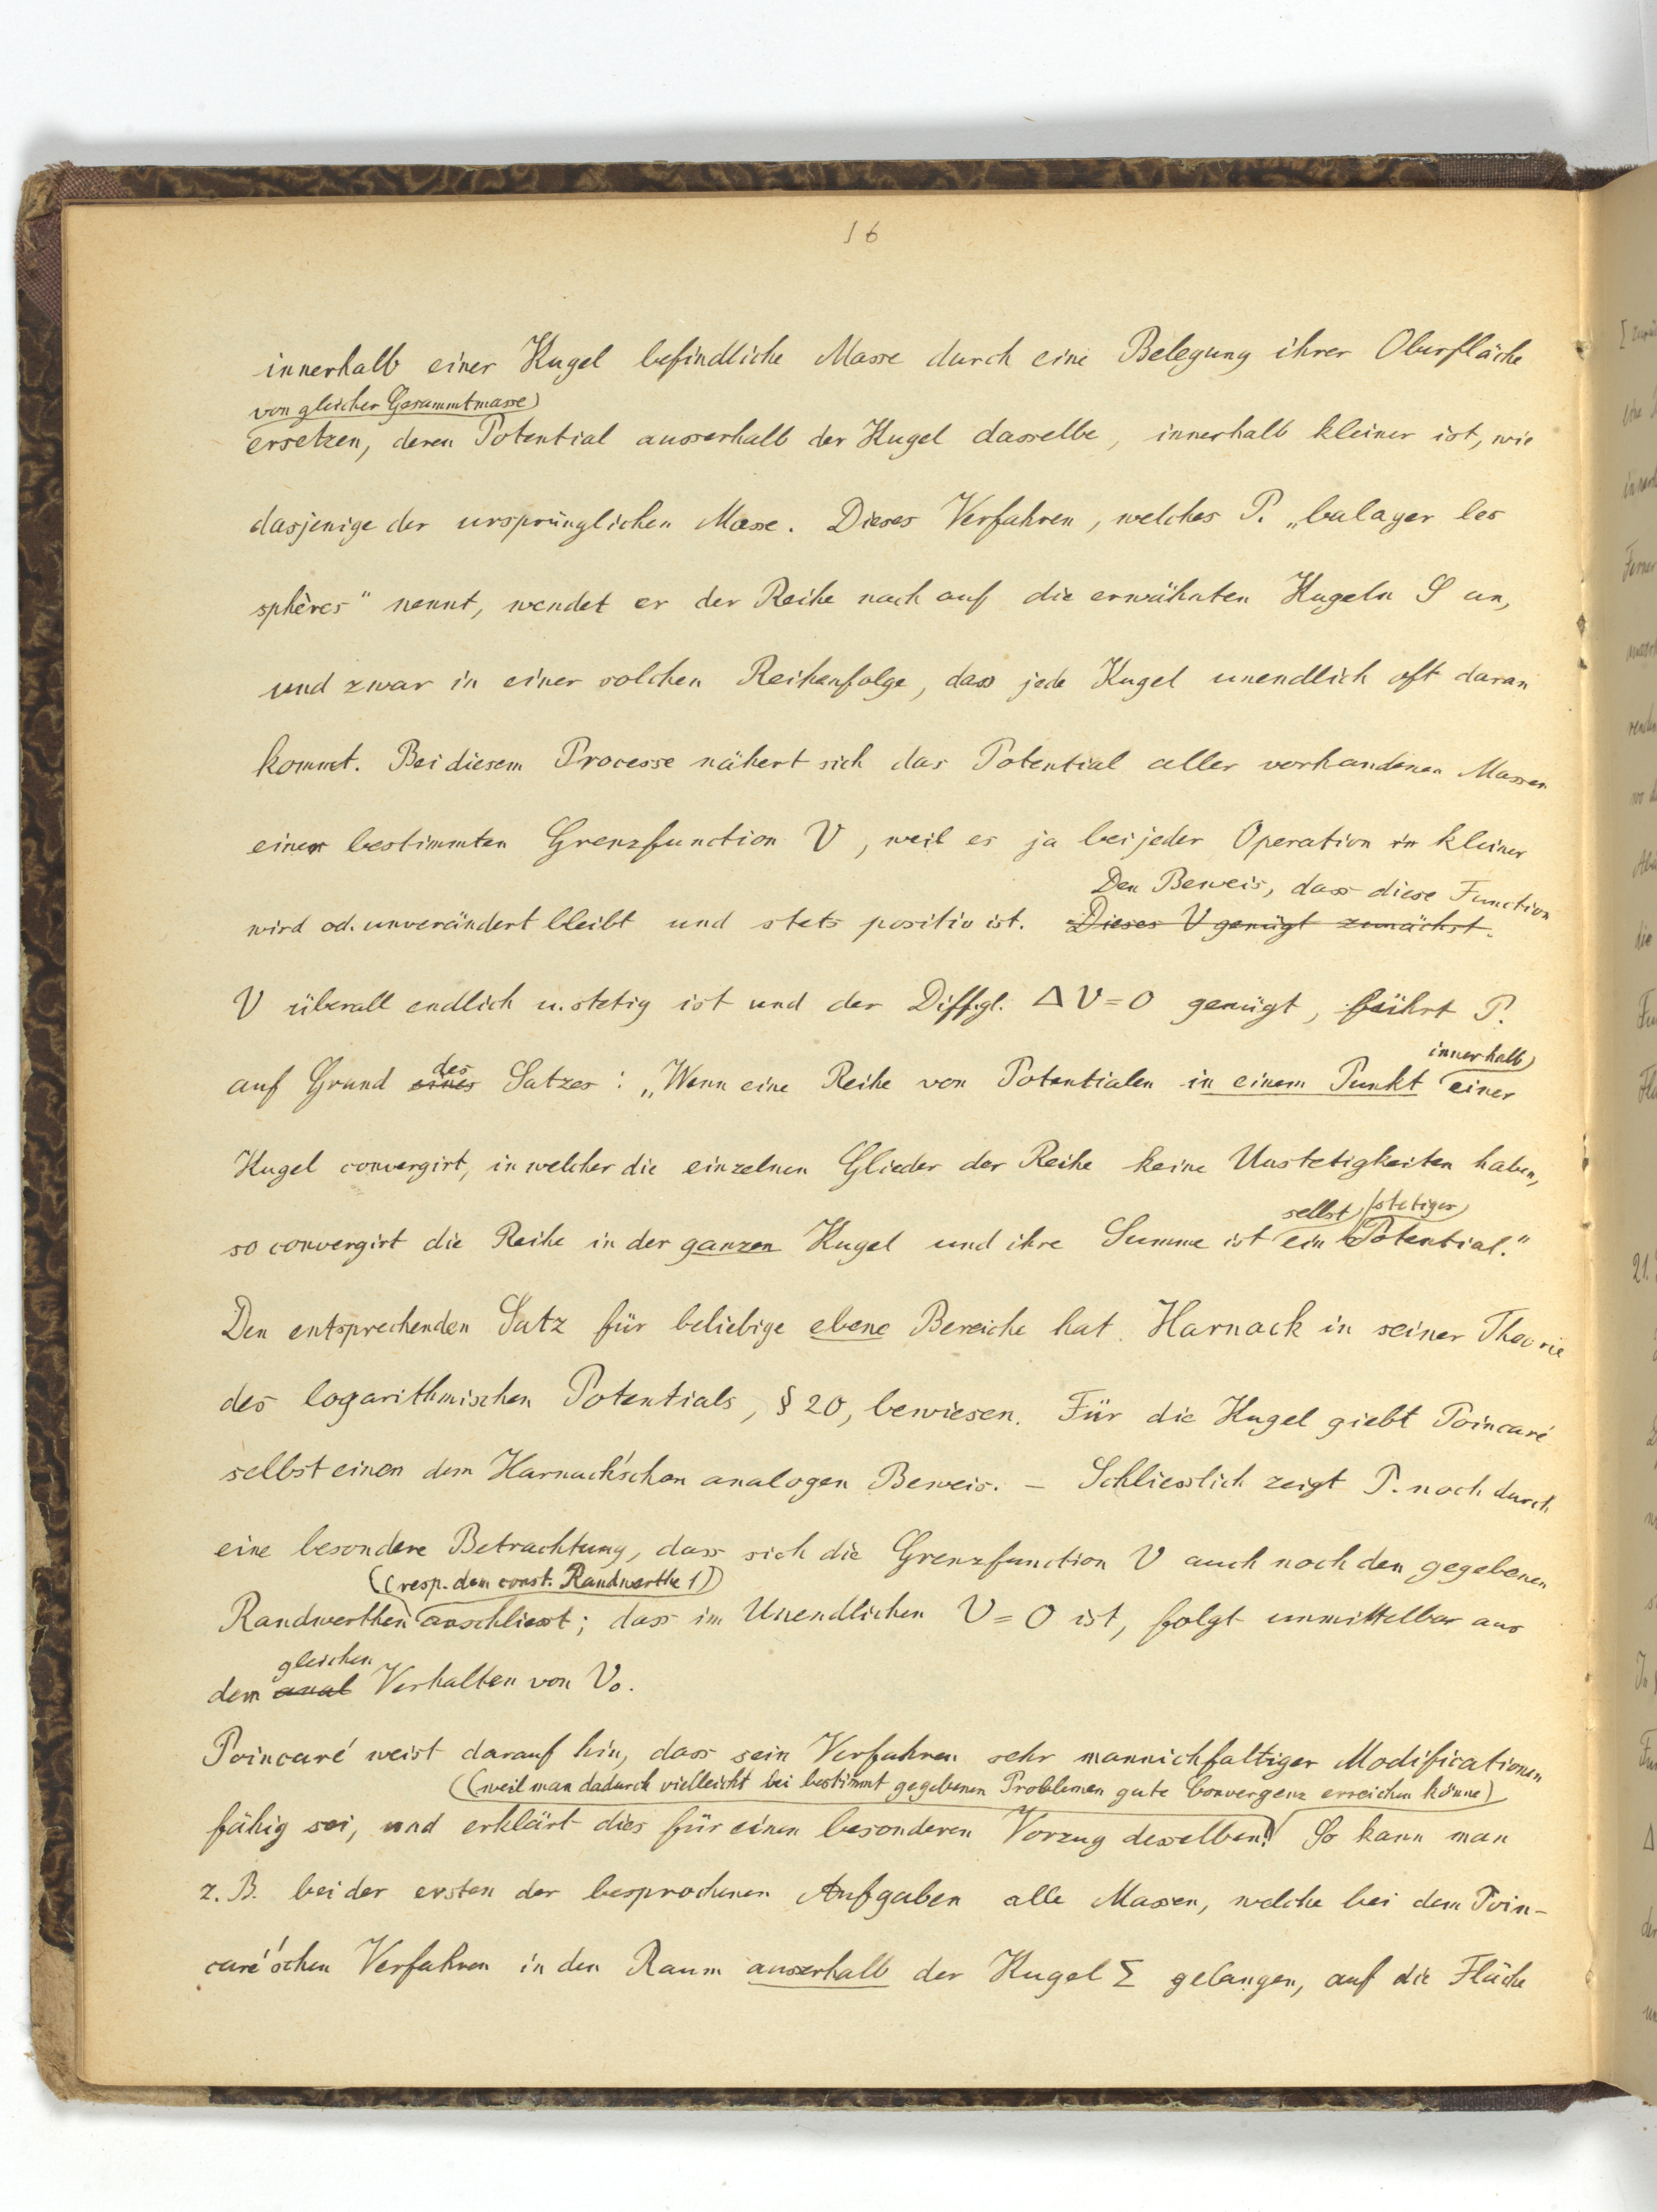 16
innerhalb einer Kugel befindliche Masse durch eine Belegung ihrer Oberfläche
von gleicher Gesammtmasse
ersetzen, deren Potential ausserhalb der Kugel dasselbe, innerhalb kleiner ist, wie
dasjenige der ursprünglichen Masse. Dieses Verfahren, welches P. „balayer les
sphères“ nennt, wendet er der Reihe nach auf die erwähnten Kugeln S an,
und zwar in einer solchen Reihenfolge, dass jede Kugel unendlich oft daran
kommt. Bei diesem Processe nähert sich das Potential aller vorhandenen Massen
einer bestimmten Grenzfunction V, weil es ja bei jeder Operation kleiner
Den Beweis, dass diese Function
wird od. unverändert bleibt und stets positiv ist. Dieses V genügt zunächst
V überall endlich u. stetig ist und der Diffgl. ΔV=0 genügt, führt P.
innerhalb
auf Grund eines des Satzes: „Wenn eine Reihe von Potentialen in einem Punkt einer
Kugel convergirt, in welcher die einzelnen Glieder der Reihe keine Unstetigkeiten haben,
selbst stetiges
so convergirt die Reihe in der ganzen Kugel und ihre Summe ist ein Potential.“
Den entsprechenden Satz für beliebige ebene Bereiche hat Harnack in seiner Theorie
des logarithmischen Potentials, § 20, bewiesen. Für die Kugel giebt Poincaré
selbst einen dem Harnack'schen analogen Beweis. – Schliesslich zeigt P. noch durch
eine besondere Betrachtung, dass sich die Grenzfunction V auch noch den gegebenen
(resp. dem const. Randwerthe 1)
Randwerthen anschliesst; dass im Unendlichen V=0 ist, folgt unmittelbar aus
gleichen
dem anal Verhalten von V₀.
Poincaré weist darauf hin, dass sein Verfahren sehr mannichfaltiger Modificationen
(weil man dadurch vielleicht bei bestimmt gegebenen Problemen gute Convergenz erreichen könne)
fähig sei, und erklärt dies für einen besonderen Vorzug desselben. So kann man
z. B. bei der ersten der besprochenen Aufgaben alle Massen, welche bei dem Poin-
caré'schen Verfahren in den Raum ausserhalb der Kugel Σ gelangen, auf die Fläche